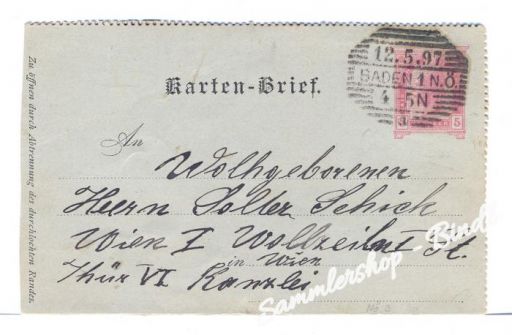 Karten-Brief.
12.5.97
BADEN 1 N.Ö.
4 5N
5
An
Wohlgeborenen
Herrn Schick
Wien I
in Wien
Thür VI Kanzlei
Zu öffnen durch Abtrennung des durchlochten Randes.
Sammlershop - Binde